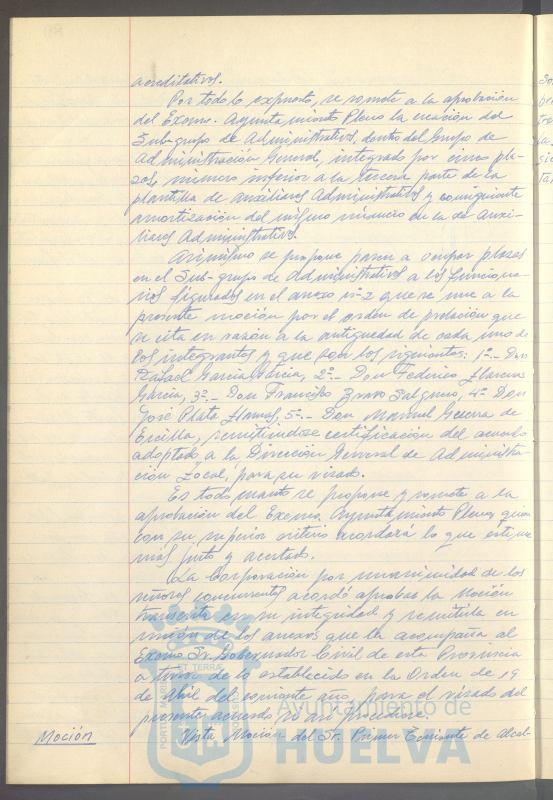 acreditativos.
Por todo lo expuesto, se somete a la aprobación
del Excmo. Ayuntamiento Pleno la creación del
Sub-grupo de Administrativos, dentro del Grupo de
Administración General, integrado por cinco pla-
zas, número inferior a la tercera parte de la
plantilla de auxiliares Administrativos y consiguiente
amortización del mismo número en la de Auxi-
liares Administrativos.
Asimismo se propone pasen a ocupar plazas
en el Sub-grupo de Administrativos a los funciona-
rios figurados en el anexo nº 2 que se une a la
presente moción por el orden de prelación que
se cita en razón a la antigüedad de cada uno de
los integrantes y que son los siguientes: 1º.- Don
Rafael García 2º.- Don Federico Llarena
García, 3º.- Don Francisco Bravo Salguero, 4º Don
José Plata Llamas, 5º.- Don Manuel Guerra de
Ercilla, remitiéndose certificación del acuerdo
adoptado a la Dirección General de Administra-
ción Local, para su visado.
Es todo cuanto se propone y somete a la
aprobación del Excmo. Ayuntamiento Pleno, quien
con su superior criterio acordará lo que estime
más justo y acertado.
La Corporación por unanimidad de los
señores concurrentes acordó aprobar la Moción
transcrita en su integridad y remitirla en
unión de los anexos que la acompaña al
Excmo. Sr. Gobernador Civil de esta Provincia
a tenor de lo establecido en la Orden de 19
de Abril del corriente año, para el visado del
presente acuerdo, si así procediere.
Moción
Vista Moción del Sr. Primer Teniente de Alcal-
Ayuntamiento de
HUELVA